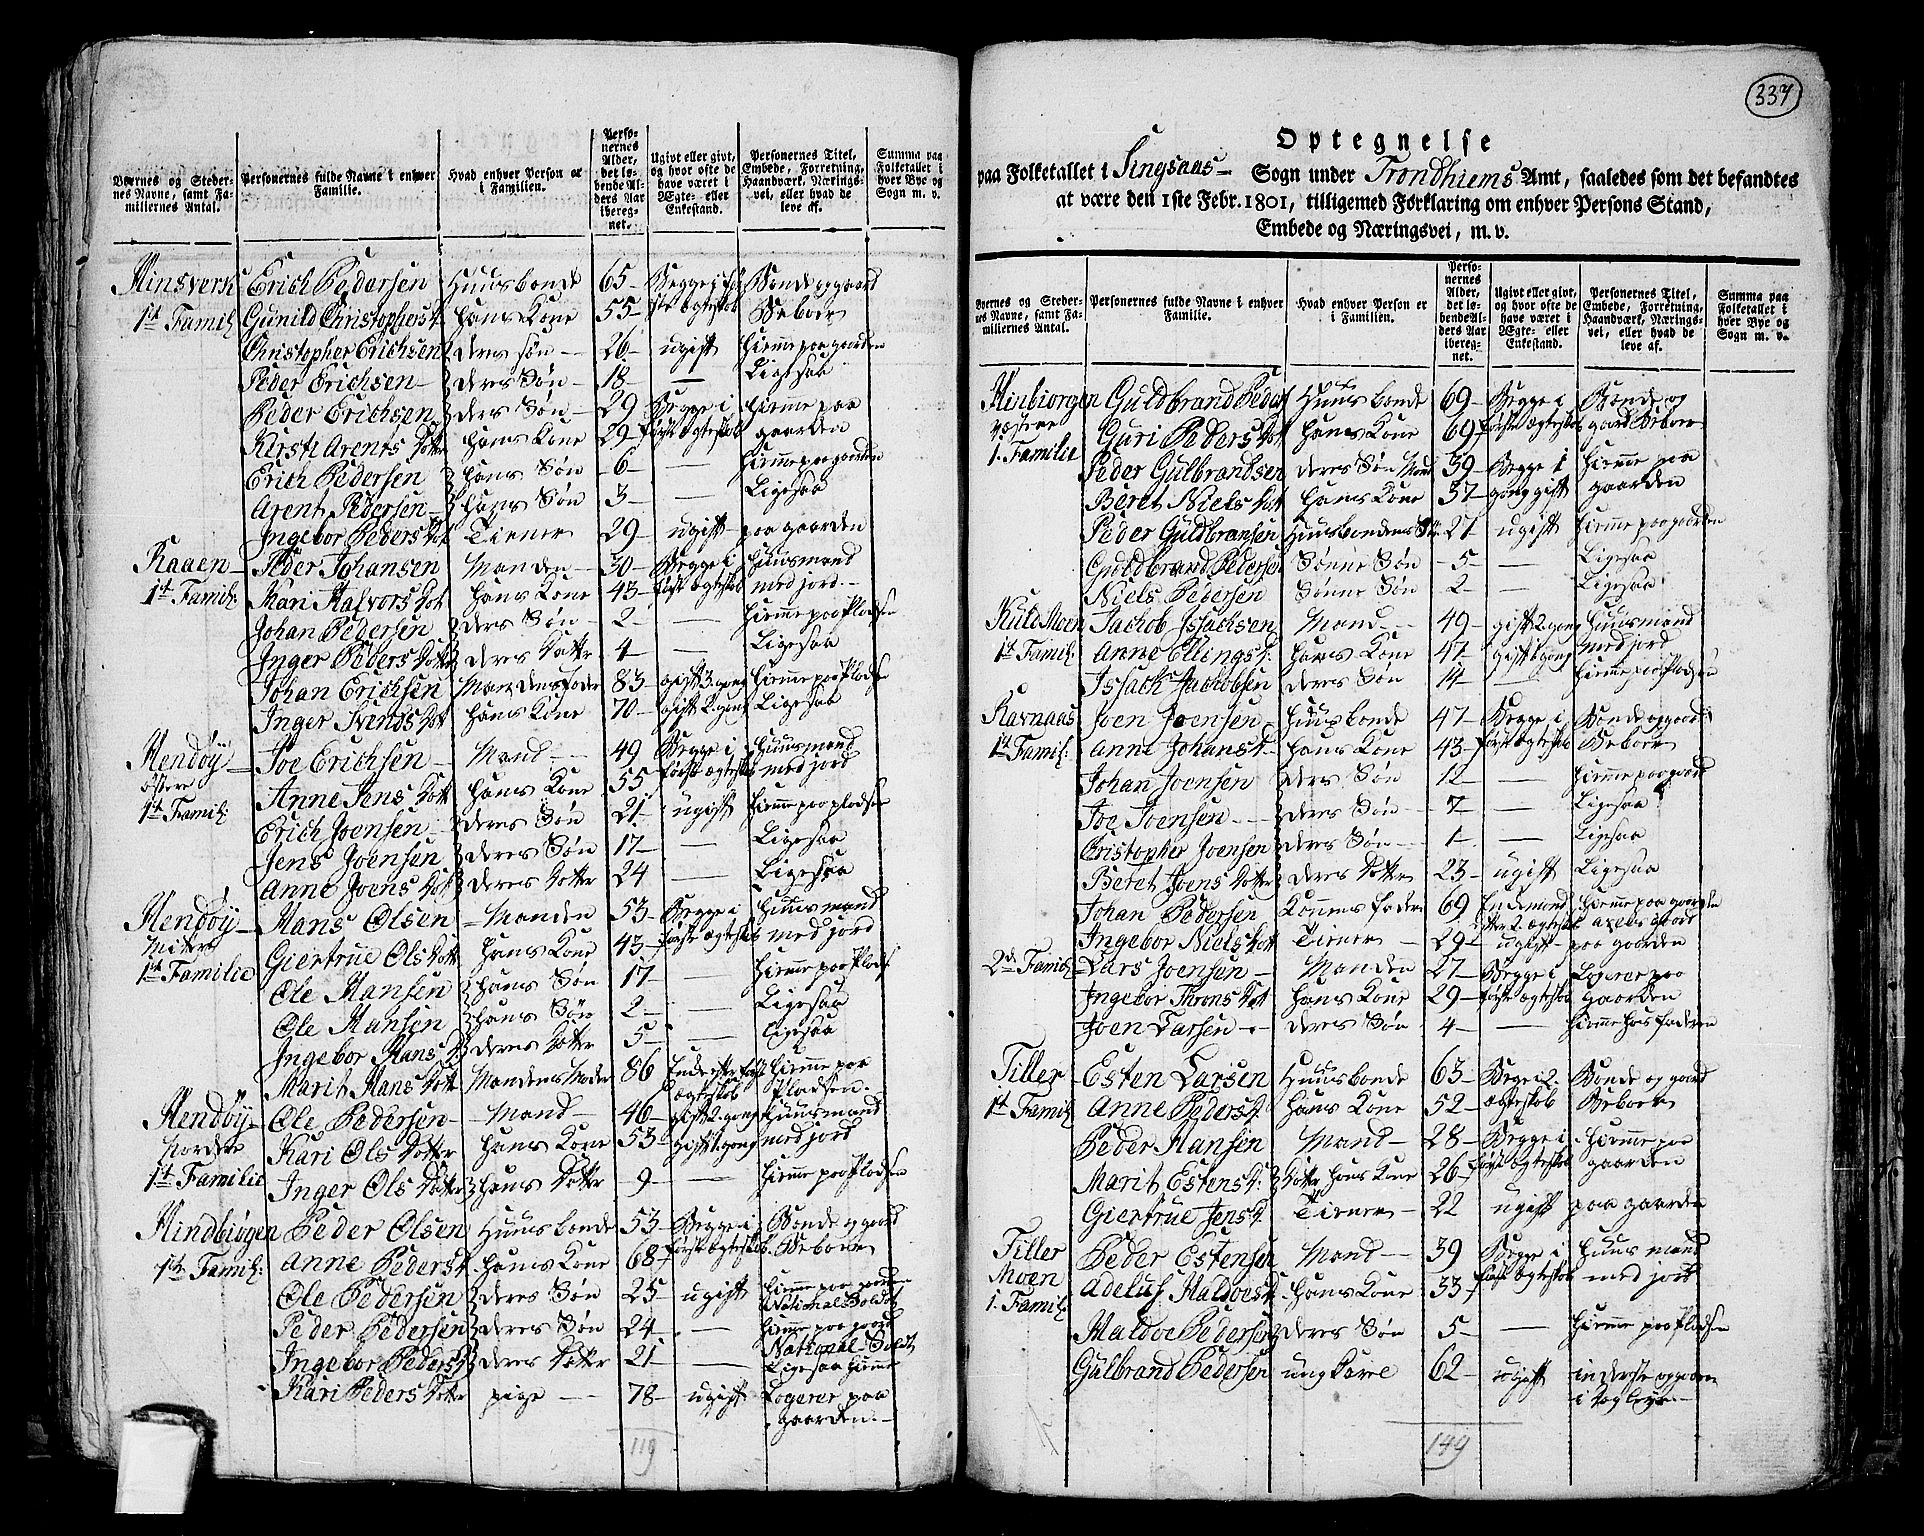 Byernes og Steder-nes Navne, samt Fa-miliernes Antal.
Personernes fulde Navne i enhver Familie.
Hvad enhver Person er i Familien.
Perso-nernes Alder, det lø-bende Al-ders Aar ibereg-net.
Ugivt eller givt, og hvor ofte de have været i Ægte- eller Enkestand.
Personernes Titel, Embede, Forretning, Haandværk, Nærings-vei, eller hvad de leve af.
Summa paa Folketallet i hver Bye og Sogn m. v.
Erich Pedersen Huusbonde 65 Begge i Bonde og gaard
1te Famil: Gunild Christophers D. hans Kone 55 1ste ægteskab Beboer
Christopher Erichsen deres søn 26 ugift hiemme paa gaarden
Peder Erichsen deres Søn 18 — Ligesaa
Peder Erichsen deres Søn 29 Begge i hiemme paa
Kirsti Arents Dotter hans Kone 29 første ægteskab gaarden
Erich Pedersen hans Søn 6 — hiemme paa gaarden
Arent Pedersen hans Søn 3 — Ligesaa
Ingebor Peders Dot Tiener 29 ugift paa gaarden
Raaen Peder Johansen Manden 30 Begge i Huusmand
1te Famil: Mari Halvors Dot hans Kone 43 første ægteskab med jord
Johan Pedersen deres Søn 2 — hiemme paa Pladsen
Inger Peders Dotter deres Dotter 4 — Ligesaa
Johan Erichsen Mandens fader 83 gift 3. gang hiemme paa Pladsen
Inger Svends Dot hans Kone 70 gift 2. gang Ligesaa
Hendøÿ Joe Erichsen Mand 49 Begge i Huusmand
østere Anne Jens Dott hans Kone 55 første ægteskab med jord
1te Famil: Erich Joensen deres Søn 21 ugift hiemme paa pladsen
Jens Joensen deres Søn 17 — Ligesaa
Anne Joens Dot deres Dotter 24 — Ligesaa
Hendøÿ Hans Olsen Manden 53 Begge i Huusmand
Mitere Giertrue Ols Dott hans Kone 43 første ægteskab med jord
1te Familie Ole Hansen hans Søn 17 — hiemme paa Pladsen
Ole Hansen hans Søn 2 — Ligesaa
Ingebor Hans D. deres Dotter 5 — Ligesaa
Marit Hans Dott Mandens Moder 86 hiemme paa
ægteskab Pladsen
Hendøÿ Ole Pedersen Mand 46 gift 2. gang Huusmand
Nordere Kari Ols Dotter hans Kone 53 gift 1. gang med jord
1te Familie Inger Ols Dotter hans Dotter 9 — hiemme paa Pladsen
Hindbiøgen Peder Olsen Huusbonde 53 Begge i Bonde og gaard
1te Famil: Anne Peders D. hans Kone 68 første ægteskab Beboer
Ole Pedersen deres Søn 25 ugift hiemme paa gaarden National Soldat
Peder Pedersen deres Søn 24 — hiemme paa gaard National Soldat
Ingebor Peders D. deres Dotter 21 — Ligesaa hiemme
Kari Peders Dotter pige 78 ugift Logerer paa
gaarden
119
337
Optegnelse
paa Folketallet i Singsaas Sogn under Trondhiems Amt, saaledes som det befandtes
at være den 1ste Febr. 1801, tilligemed Forklaring om enhver Persons Stand,
Embede og Næringsvei, m. v.
Byernes og Steder-nes Navne, samt Fa-miliernes Antal.
Personernes fulde Navne i enhver Familie.
Hvad enhver Person er i Familien.
Perso-nernes Alder, det lø-bende Al-ders Aar ibereg-net.
Ugivt eller givt, og hvor ofte de have været i Ægte- eller Enkestand.
Personernes Titel, Embede, Forretning, Haandværk, Nærings-vei, eller hvad de leve af.
Summa paa Folketallet i hver Bye og Sogn m. v.
Hinbiørgen Guldbrand Peders Huusbonde 69 Begge i Bonde og
væstere Guri Peders Dot hans Kone 69 første ægteskab gaard Beboer
1. Familie Peder Gulbrandsen deres Søn Mand 39 Begge 1 hiemme paa
Beret Niels Dot hans Kone 37 gang gift gaarden
Peder Guldbransen Huusbondens Søn 27 ugift hiemme paa gaarden
Guldbrand Pedersen Sønne Søn 5 — Ligesaa
Niels Pedersen Sønne Søn 2 — Ligesaa
Jachob Issachsen Mand 49 gift 2 gang Huusmand
1te Famil: Anne Ellings D. hans Kone 47 gift 1 gang med jord
Issach Jachobsen deres Søn 14 — hiemme paa Pladsen
Ravnaas Joen Joensen Huusbonde 47 Begge i Bonde og gaard
1te Famil: Anne Johans D. hans Kone 43 første ægteskab Beboer
Johan Joensen deres Søn 12 — hiemme paa gaard
Joe Joensen deres Søn 7 — Ligesaa
Christopher Joensen deres Søn 1 — Ligesaa
Beret Joens Dotter deres Dotter 23 ugift Ligesaa
Johan Pedersen Konnens fader 69 Enkemand hiemme paa gaarden
efter 2. ægteskab
Ingebor Niels Dot Tiener 29 ugift paa gaarden
2de Famil: Lars Joensen Manden 27 Begge i Logerer paa
Ingebor Throns Dot hans Kone 29 første ægteskab gaarden
Joen Larsen deres Søn 4 — hiemme hos faderen
Tiller Esten Larsen Huusbonde 63 Begge i 2. Bonde og gaard
1te Famil: Anne Peders D. hans Kone 52 ægteskab Beboer
Peder Hansen Mand 28 Begge i hiemme paa
Marit Estens D. Dotter hans Kone 26 første ægteskab gaarden
Giertrue Jens D. Tiener 22 ugift paa gaarden
Tiller Peder Estensen Mand 39 Begge i Huusmand
Moen Adelus Haldoes D. hans Kone 33 første ægteskab med jord
1. Famil: Haldoe Pedersen deres Søn 5 — hiemme paa Pladsen
Gulbrand Pedersen ungkarl 62 ugift inderste
149